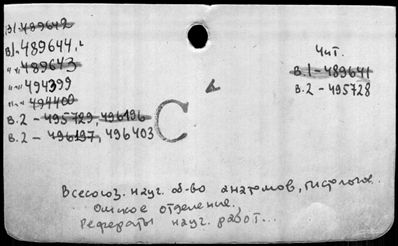 В1-489642
В1-489644
"-"-489643
"-"-494399
"-"-494400
В.2 - 495729, 496196
В.2 - 496197, 496403
С
Чит.
В.1-489641
В.2-495728
Всесоюз. науч. об-во анатомов, гистологов...
Омское отделение,
Рефераты науч. работ...